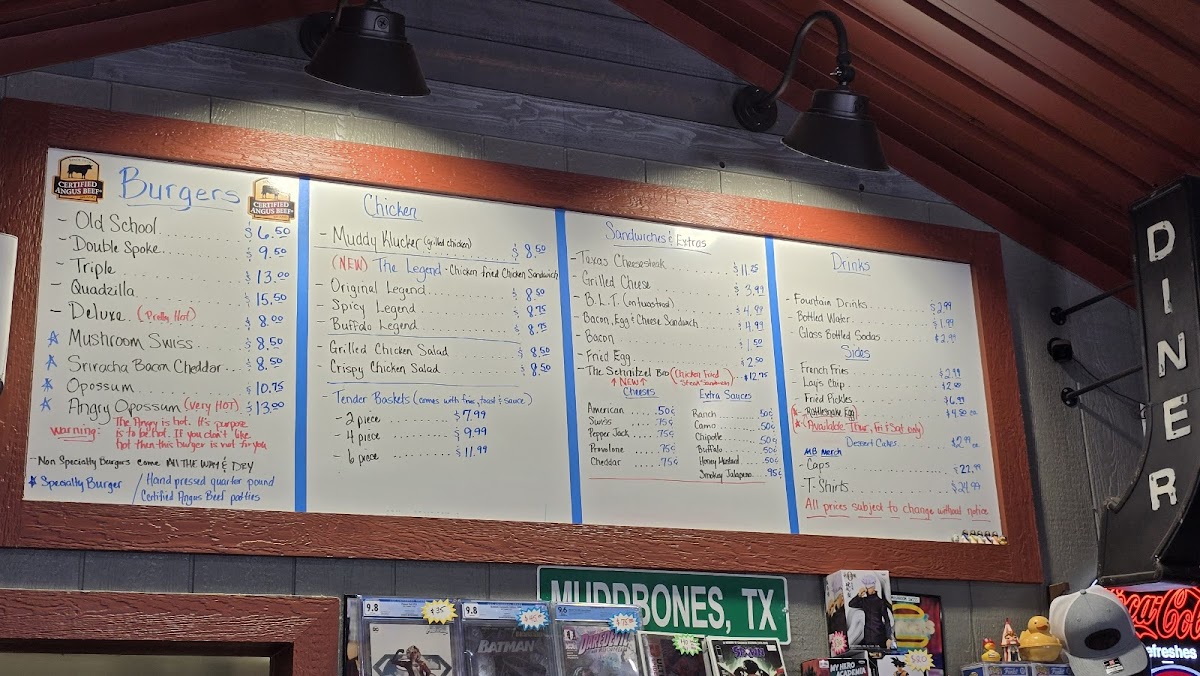 CERTIFIED
ANGUS BEEF
Burgers
CERTIFIED
ANGUS BEEF
- Old School $6.50
- Double Spoke $9.50
- Triple $13.00
- Quadzilla $15.50
- Deluxe (Pretty Hot) $8.00
Mushroom Swiss $8.50
Sriracha Bacon Cheddar $8.50
Opossum $10.75
Angry Opossum (Very HOT) $13.00
Warning: The Angry is hot. It's purpose
is to be hot. If you don't like
hot then this burger is not for you
- Non Specialty Burgers come All THE WAY & DRY
Specialty Burger / Hand pressed quarter pound
Certified Angus Beef patties
Chicken
- Muddy Klucker (grilled chicken) $8.50
(NEW) The Legend - Chicken fried Chicken Sandwich
- Original Legend $8.50
- Spicy Legend $8.75
- Buffalo Legend $8.75
- Grilled Chicken Salad $8.50
- Crispy Chicken Salad $8.50
- Tender Baskets (comes with fries, toast & sauce)
- 2 piece $7.99
- 4 piece $9.99
- 6 piece $11.99
Sandwiches & Extras
- Texas Cheesesteak $11.25
- Grilled Cheese $3.99
- B.L.T. (on texas toast) $4.99
- Bacon, Egg & Cheese Sandwich $4.99
- Bacon $1.50
- Fried Egg $2.50
- The Schnitzel Bro (Chicken Fried Steak Sandwich) $12.75
↑ NEW ↑
Cheeses
American .50¢
Swiss .75¢
Pepper Jack .75¢
Provolone .75¢
Cheddar .75¢
Extra Sauces
Ranch .50¢
Camo .50¢
Chipotle .50¢
Buffalo .50¢
Honey Mustard .50¢
Smokey Jalapeno .95¢
Drinks
- Fountain Drinks $2.99
- Bottled Water $1.99
- Glass Bottled Sodas $2.99
Sides
- French Fries $2.99
- Lay's Chip $2.00
- Fried Pickles $6.99
- Rattlesnake Egg $4.50 ea
(Available Thur, Fri & Sat only)
Dessert Cakes $2.99 ea
MB Merch
- Caps $22.99
- T-Shirts $24.99
All prices subject to change without notice
DINER
MUDDBONES, TX
9.8
$35
9.8
BATMAN
9.6
DAREDEVIL
MY HERO
ACADEMIA
Coca-Cola
Refreshes